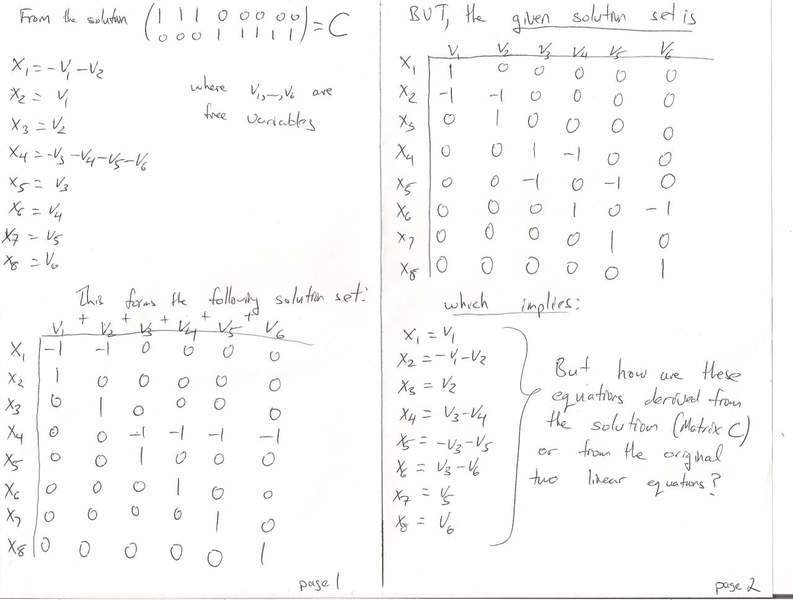 From the solution (1 1 1 0 0 0 0 0
0 0 0 1 1 1 1 1) = C
X1 = -V1 - V2
X2 = V1
where V1,...,V6 are
free variables
X3 = V2
X4 = -V3 - V4 - V5 - V6
X5 = V3
X6 = V4
X7 = V5
X8 = V6
This forms the following solution set:
V1 + V2 + V3 + V4 + V5 + V6
X1 -1 -1 0 0 0 0
X2 1 0 0 0 0 0
X3 0 1 0 0 0 0
X4 0 0 -1 -1 -1 -1
X5 0 0 1 0 0 0
X6 0 0 0 1 0 0
X7 0 0 0 0 1 0
X8 0 0 0 0 0 1
page 1
BUT, the given solution set is
V1 V2 V3 V4 V5 V6
X1 1 0 0 0 0 0
X2 -1 -1 0 0 0 0
X3 0 1 0 0 0 0
X4 0 0 1 -1 0 0
X5 0 0 -1 0 -1 0
X6 0 0 0 1 0 -1
X7 0 0 0 0 1 0
X8 0 0 0 0 0 1
which implies:
X1 = V1
X2 = -V1 - V2
X3 = V2
X4 = V3 - V4
X5 = -V3 - V5
X6 = V3 - V6
X7 = V5
X8 = V6
But how are these
equations derived from
the solution (Matrix C)
or from the original
two linear equations?
page 2